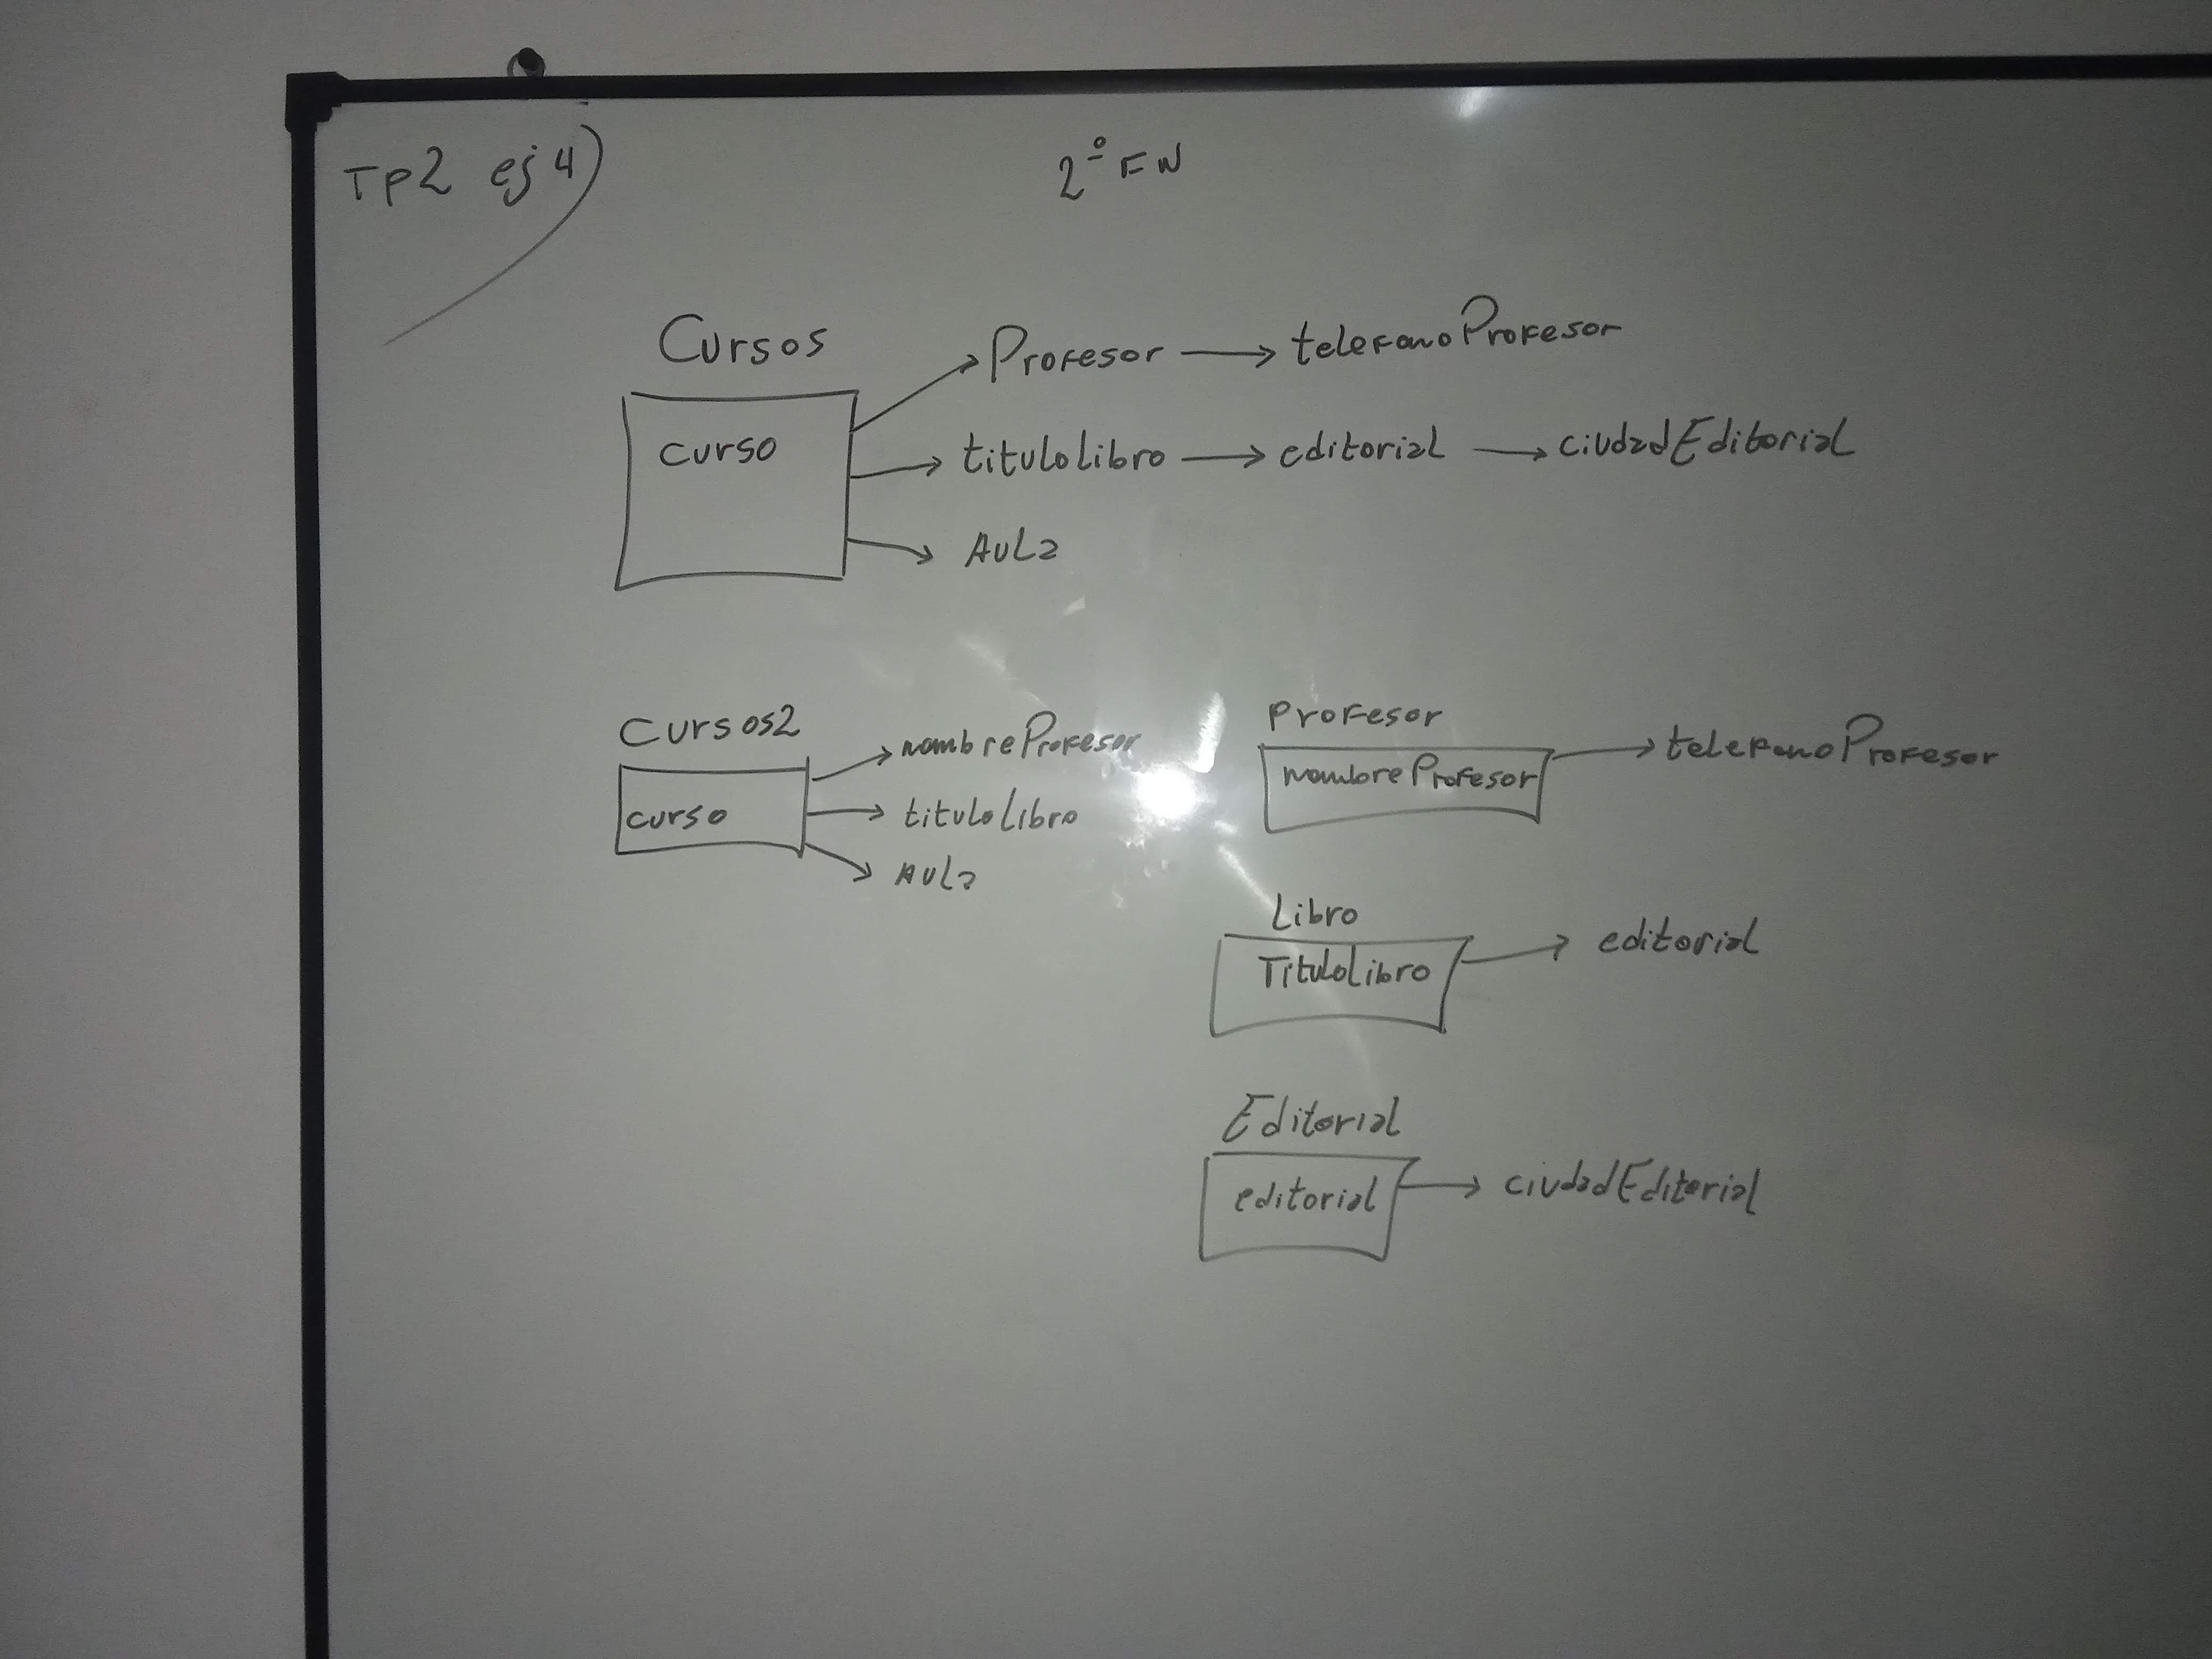 TP2 ej 4)
2º FN
Cursos
Profesor → telefonoProfesor
curso
titulolibro → editorial → ciudadEditorial
Aula
Cursos2
nombreProfesor
curso
titulolibro
Aula
Profesor
nombreProfesor → telefonoProfesor
Libro
Titulolibro → editorial
Editorial
editorial → ciudadEditorial